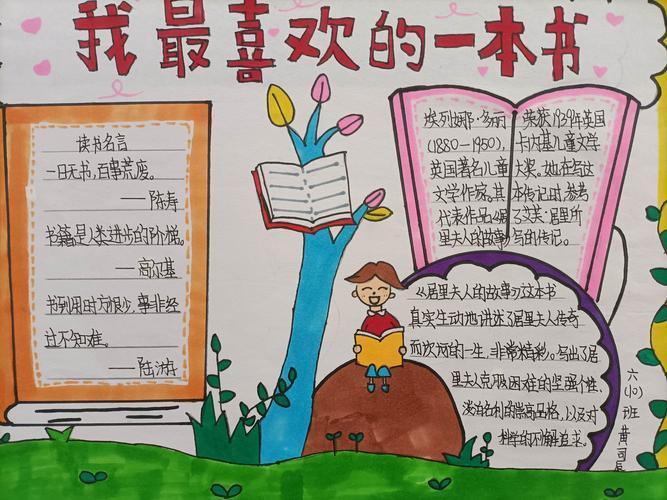 我最喜欢的一本书
读书名言
一日无书,百事荒废。
——陈寿
书籍是人类进步的阶梯。
——高尔基
书到用时方恨少,事非经
过不知难。
——陆游
埃列娜·多丽
(1880—1950),
英国著名儿童
文学作家。其
代表作品《居
里夫人的故事》
荣获1939年英国
卡内基儿童文学
大奖。她在写这
本传记时,参考
了艾芙·居里所
写的传记。
《居里夫人的故事》这本书
真实生动地讲述了居里夫人传奇
而坎坷的一生,非常精彩。写出了居
里夫人克服困难的坚强个性、
淡泊名利的崇高品格,以及对
科学的不懈追求。
六(10)班 黄司